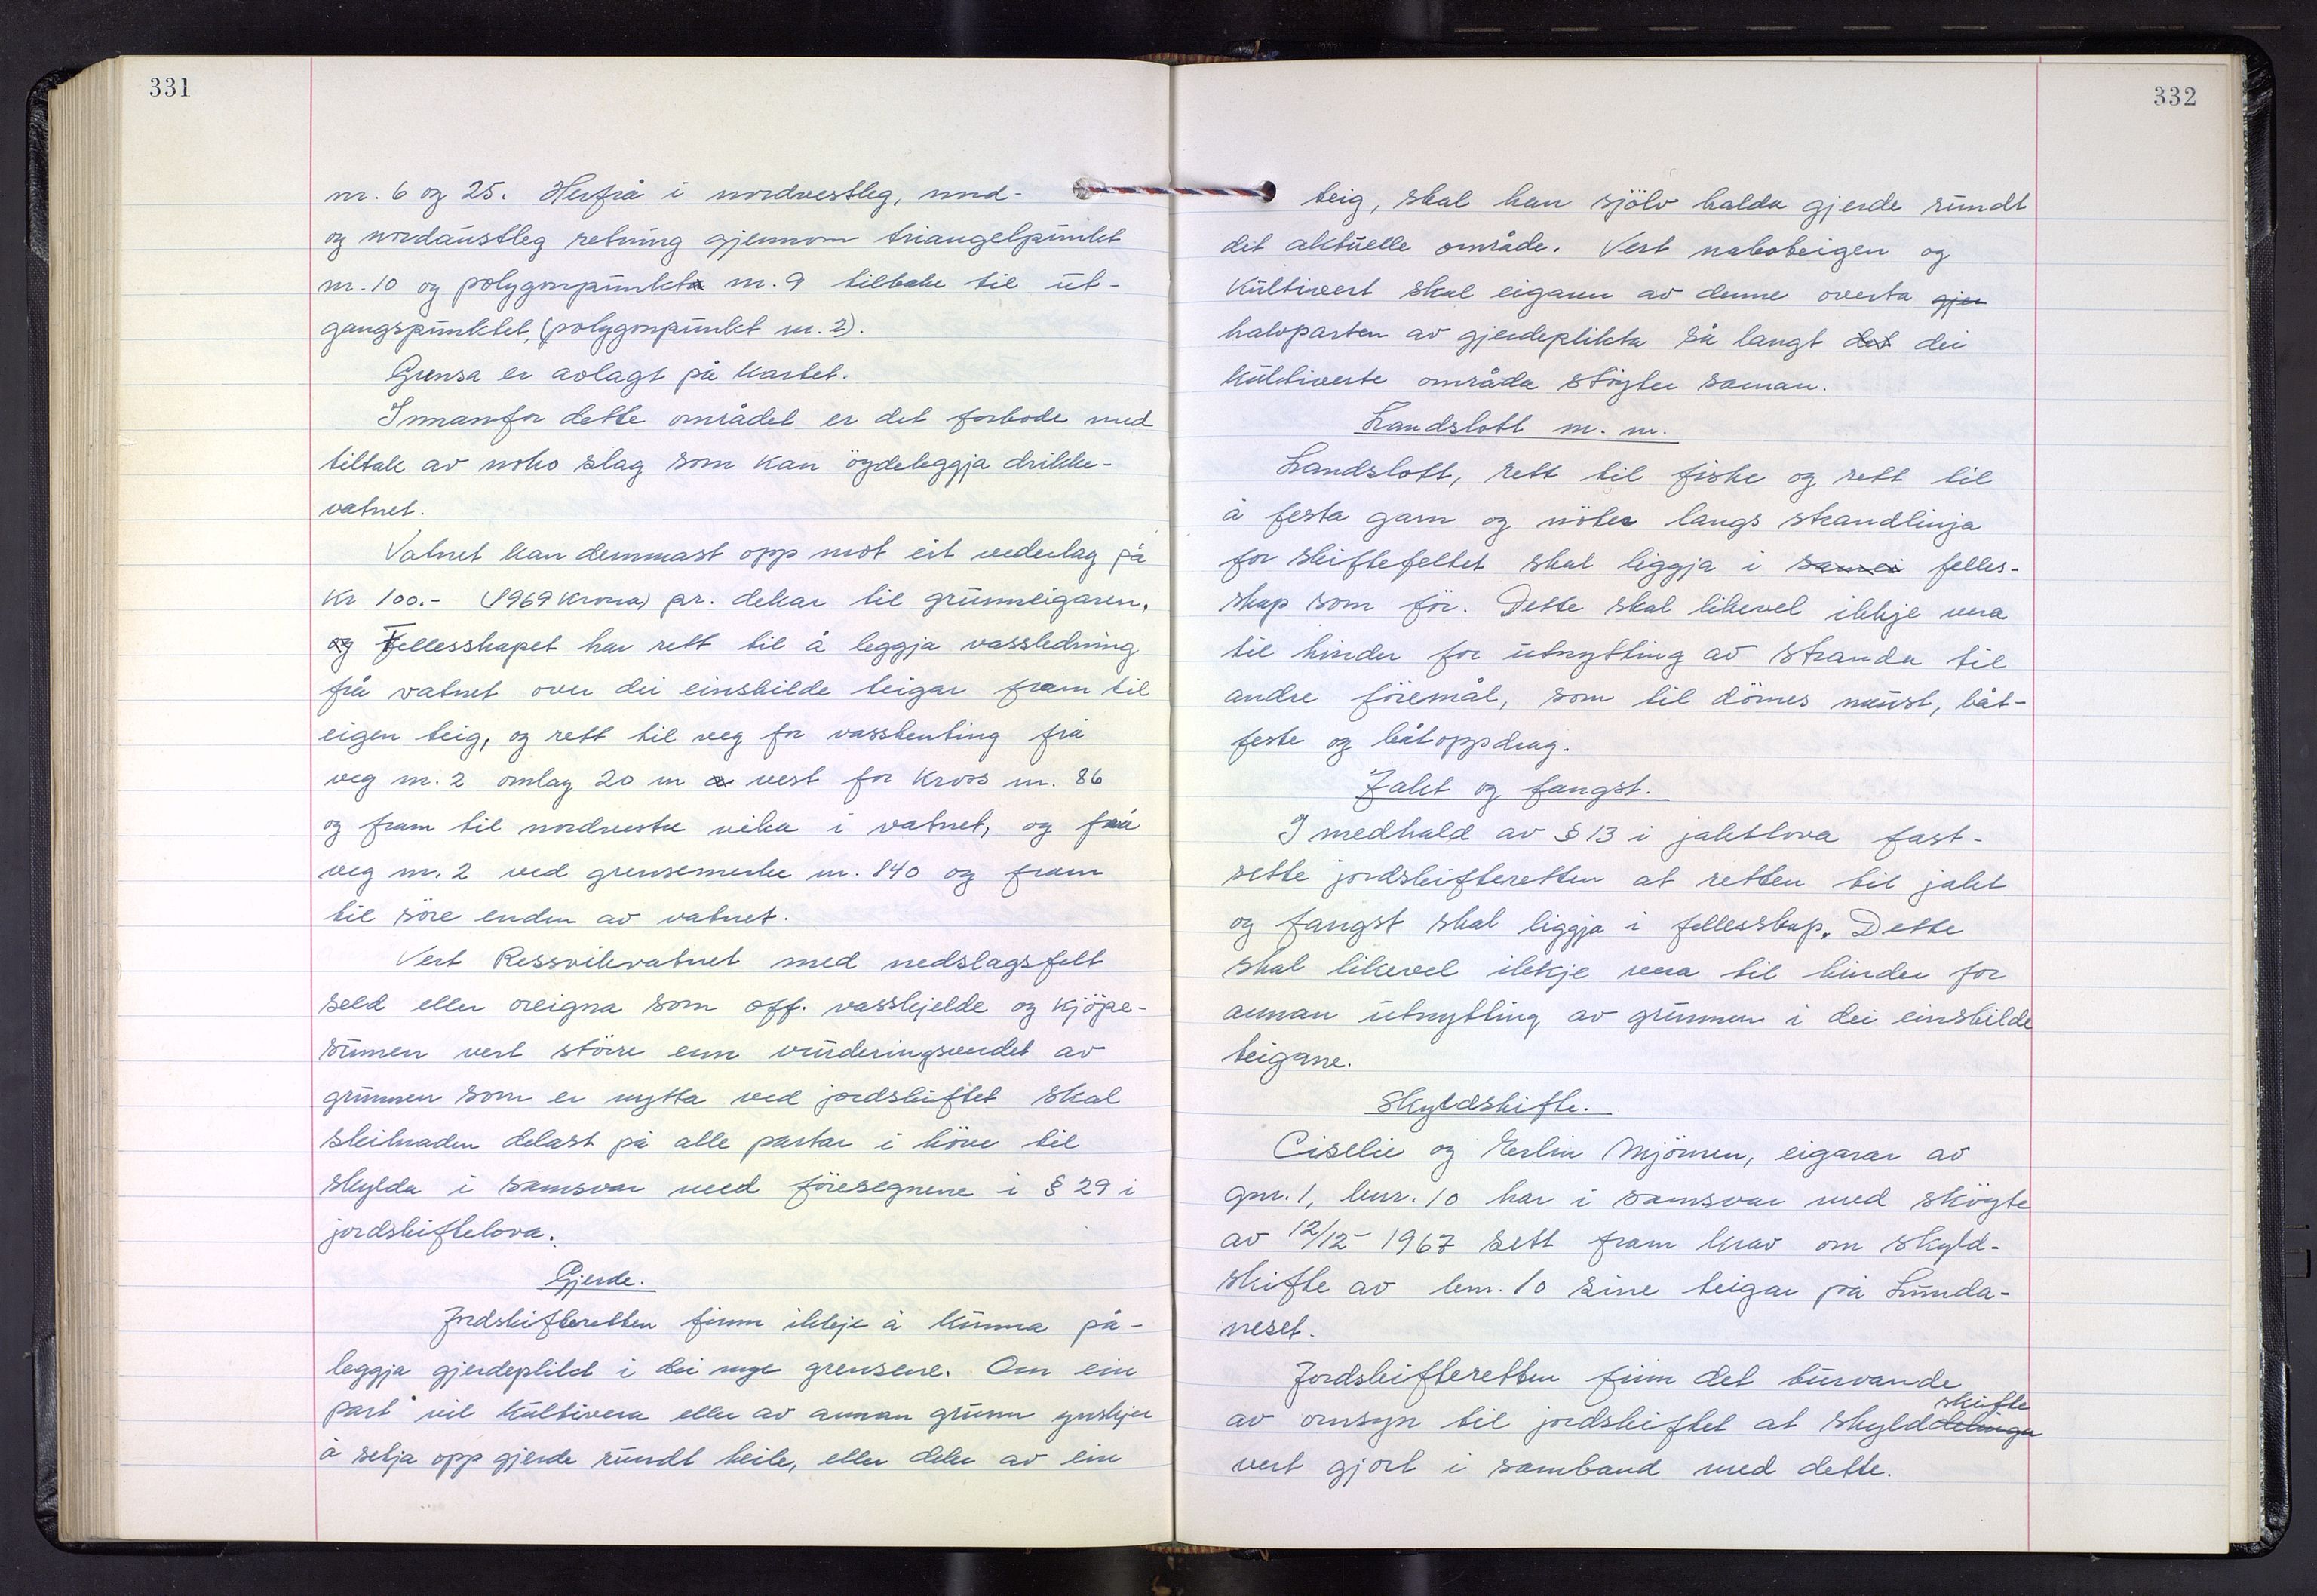 331
nr. 6 og 25. Herfrå i nordvestleg, nord-
og nordaustleg retning gjennom triangelpunkt
nr. 10 og polygonpunkt nr. 9 tilbake til ut-
gangspunktet, (polygonpunkt nr. 2).
Grensa er avlagt på kartet.
Innanfor dette området er det forbode med
tiltak av noko slag som kan öydeleggja drikke-
vatnet.
Vatnet kan demmast opp mot eit vederlag på
kr 100.- (1969 krona) pr. dekar til grunneigaren.
og Fellesskapet har rett til å leggja vassledning
frå vatnet over dei einskilde teigar fram til
eigen teig, og rett til veg for vasshenting frå
veg nr. 2 omlag 20 m a vest for kross nr. 86
og fram til nordvestre vika i vatnet, og frå
veg nr. 2 ved grensemerke nr. 840 og fram
til söre enden av vatnet.
Vert Ressvikvatnet med nedslagsfelt
seld eller oreigna som off. vasskjelde og kjöpe-
sumen vert större enn vurderingsverdet av
grunnen som er nytta ved jordskiftet skal
skilnaden delast på alle partar i höve til
skylda i samsvar med föresegnene i § 29 i
jordskiftelova.
Gjerde.
Jordskifteretten finn ikkje å kunna på-
leggja gjerdeplikt i dei nye grensene. Om ein
part vil kultivera eller av annan grunn ynskjer
å setja opp gjerde rundt heile, eller deler av ein
332
teig, skal han sjölv halda gjerde rundt
det aktuelle område. Vert naboteigen og
kultivert skal eigaren av denne overta gjer
halvparten av gjerdeplikta så langt det dei
kultiverte områda stöyter saman.
Landslott m. m.
Landslott, rett til fiske og rett til
å festa garn og nöter langs strandlinja
for skiftefeltet skal liggja i samei felles-
skap som för. Dette skal likevel ikkje vera
til hinder for utnytting av stranda til
andre föremål, som til dömes naust, båt-
feste og båtoppdrag.
Jakt og fangst.
I medhald av § 13 i jaktlova fast-
sette jordskifteretten at retten til jakt
og fangst skal liggja i fellesskap. Dette
skal likevel ikkje vera til hinder for
annan utnytting av grunnen i dei einskilde
teigane.
Skyldskifte.
Ciselie og Erlin Mjömen, eigarar av
gnr. 1, bnr. 10 har i samsvar med sköyte
av 12/12 1967 sett fram krav om skyld-
skifte av bnr. 10 sine teigar på Lunda-
neset.
Jordskifteretten finn det turvande
av omsyn til jordskiftet at skylddelinga skifte
vert gjort i samband med dette.